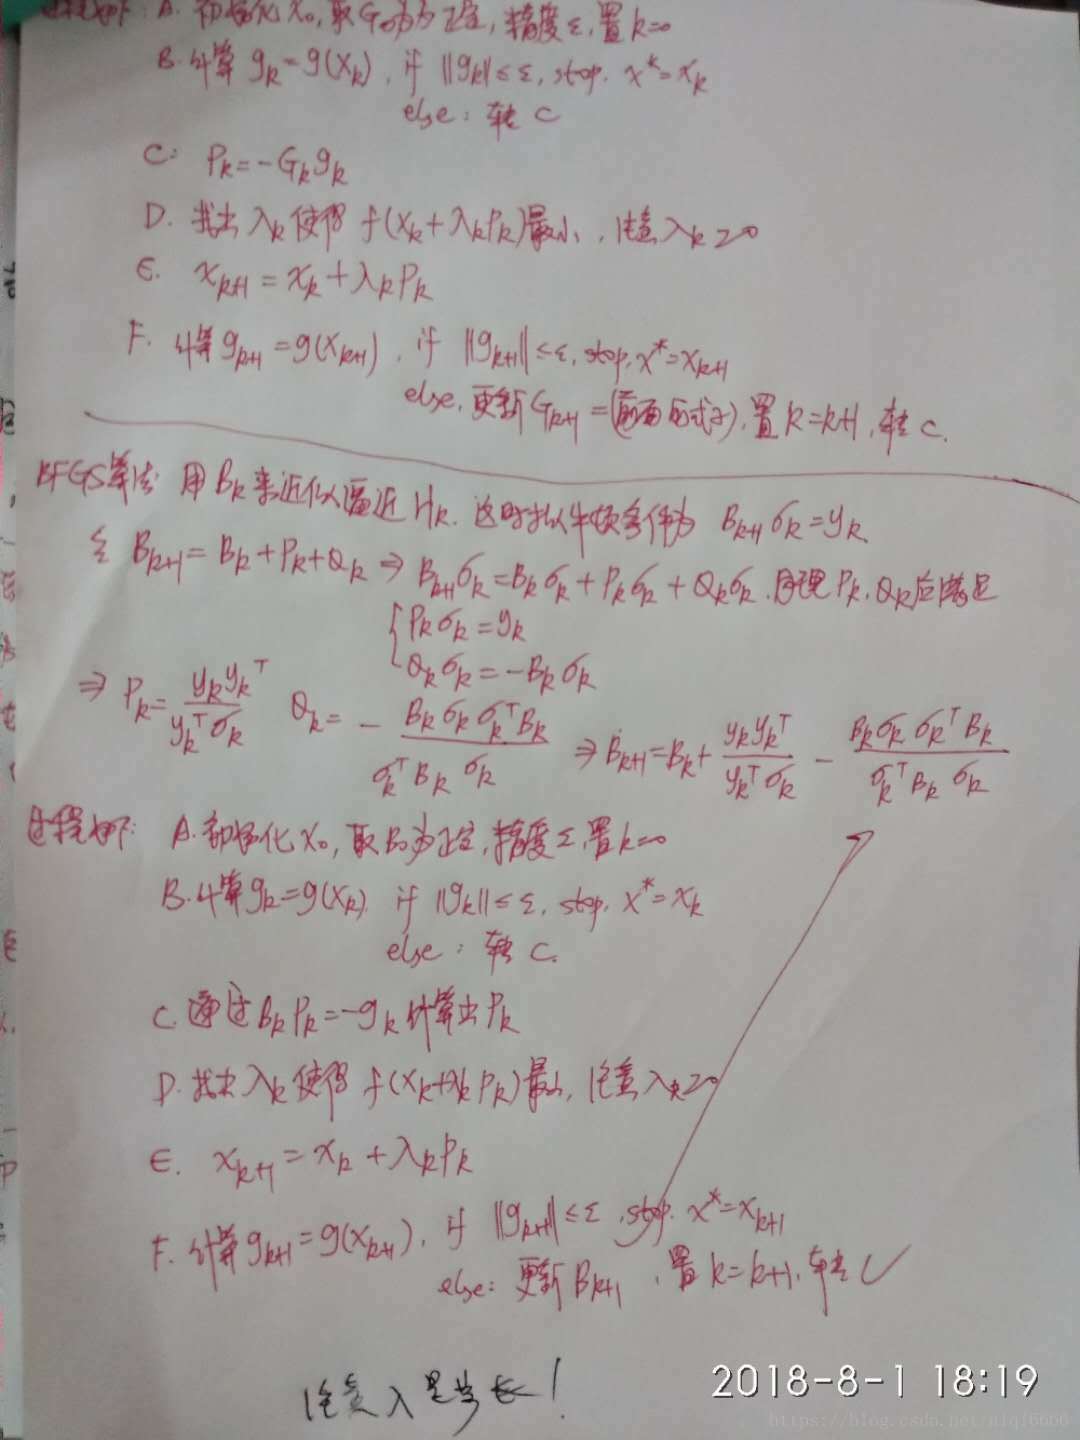 过程如下: A. 初始化 x₀, 取G₀为正定, 精度ε, 置k=0
B. 计算 gₖ=g(xₖ), if ‖gₖ‖≤ε, stop. x*=xₖ
else: 转 C
C: Pₖ=-Gₖgₖ
D. 找出λₖ使得 f(xₖ+λₖPₖ)最小, 注意λₖ≥0
E. xₖ₊₁=xₖ+λₖPₖ
F. 计算gₖ₊₁=g(xₖ₊₁), if ‖gₖ₊₁‖≤ε, stop, x*=xₖ₊₁
else, 更新Gₖ₊₁=(前面的式子), 置k=k+1, 转C.
BFGS算法: 用Bₖ来近似逼近Hₖ. 这时拟牛顿条件为 Bₖ₊₁σₖ=yₖ
Bₖ₊₁=Bₖ+Pₖ+Qₖ ⇒ Bₖ₊₁σₖ=Bₖσₖ+Pₖσₖ+Qₖσₖ. 同理Pₖ, Qₖ应满足
{Pₖσₖ=yₖ
Qₖσₖ=-Bₖσₖ
⇒ Pₖ= yₖyₖᵀ / yₖᵀσₖ Qₖ= - BₖσₖσₖᵀBₖ / σₖᵀBₖσₖ ⇒ Bₖ₊₁=Bₖ+ yₖyₖᵀ / yₖᵀσₖ - BₖσₖσₖᵀBₖ / σₖᵀBₖσₖ
过程如下: A. 初始化x₀, 取B₀为正定, 精度ε, 置k=0
B. 计算gₖ=g(xₖ) if ‖gₖ‖≤ε, stop, x*=xₖ
else: 转 C.
C. 通过BₖPₖ=-gₖ计算出Pₖ
D. 找出λₖ使得 f(xₖ+λₖPₖ)最小, 注意λₖ≥0
E. xₖ₊₁=xₖ+λₖPₖ
F. 计算gₖ₊₁=g(xₖ₊₁), if ‖gₖ₊₁‖≤ε, stop. x*=xₖ₊₁
else: 更新Bₖ₊₁, 置k=k+1, 转C
注意λ是步长!
2018-8-1 18:19